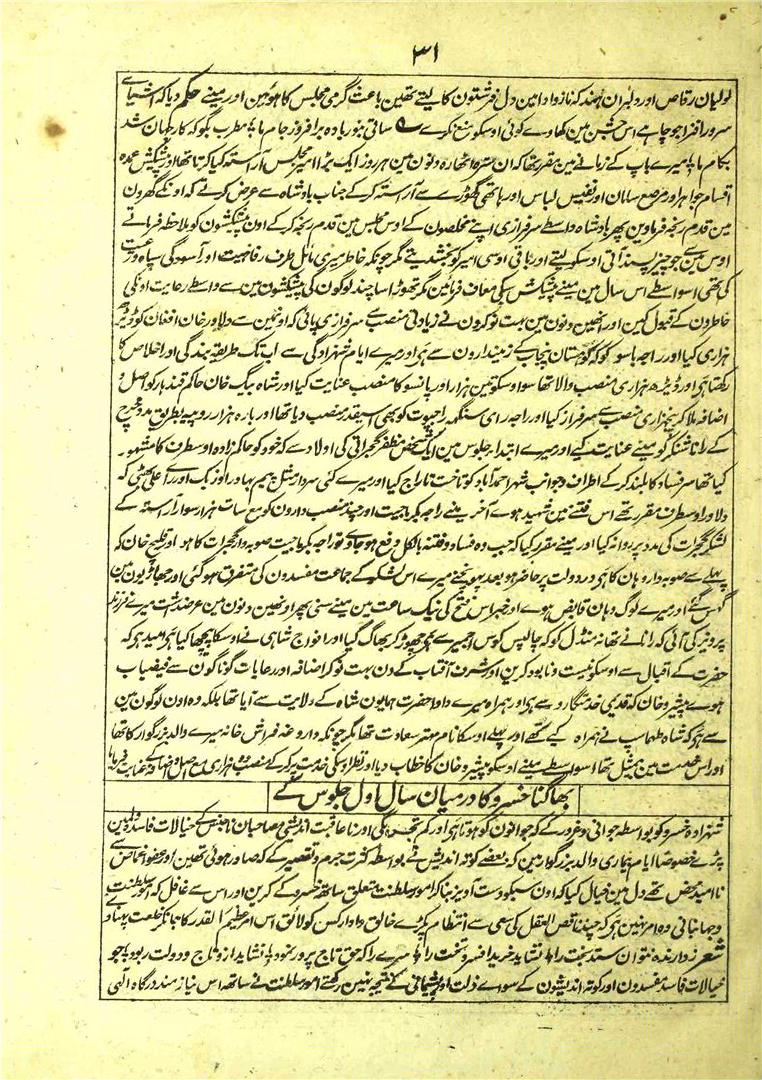 ۳۱
لولیان رقاص اور دلبران ہند کہ ناز و ادا مین دل فرشتون کا لیتے تھین باعث گرمی مجلس کا ہوئین اور مینے حکم دیا کہ اشیاے
سرور افزا جو چاہے اس جشن مین کھاوے کوئی اوسکو منع نکرے ے ساقی بنور بادہ برافروز جام ما ٭ مطرب بگو کہ کار جہان شد
بکام ما ٭ میرے باپ کے زمانے مین مقرر تھا کہ ان سترہ اٹھارہ دنون مین ہر روز ایک بڑا امیر مجلس آراستہ کیا کرتا تھا اور پیشکش عمدہ
اقسام جواہر اور مرصع سامان اور نفیس لباس اور ہاتھی گھوڑے سے آراستہ کرکے جناب بادشاہ سے عرض کرتے کہ اونکے گھرون
مین قدم رنجہ فرماوین پھر بادشاہ واسطے سرفرازی اپنے مخلصون کے اوس مجلس مین قدم رنجہ کرکے اون پیشکشون کو ملاحظہ فرماتے
اوس مین سے جو چیز پسند آتی اوسکو لیتے اور باقی اوسی امیر کو بخشدیتے مگر چونکہ خاطر میری مائل طرف رفاہیت اور آسودگی سپاہ و رعیت
کی تھی اسواسطے اس سال مین مینے پیشکش سبکی معاف فرمائین مگر تھوڑا سا چند لوگون کی پیشکشون مین سے واسطے رعایت اونکی
خاطرون کے قبول کین اور انھین دنون مین بہت نوکرون نے زیادتی منصب سے سرفرازی پائی کہ اونمین سے دلاور خان افغان کو ڈیڑھ
ہزاری کیا اور راجہ باسو کو کہ کوہستان پنجاب کے زمیندارون سے ہی اور میرے ایام شہزادگی سے اب تک طریقہ بندگی اور اخلاص کا
رکھتا ہی اور ڈیڑھ ہزاری منصب والا تھا سو اوسکو تین ہزار اور پانسو کا منصب عنایت کیا اور شاہ بیگ خان حاکم قندہار کو اصل و
اضافہ ملا کر پنجہزاری منصب سے سرفراز کیا اور راجہ راے سنگہہ راجپوت کو بھی اسیقدر منصب دیا تھا اور بارہ ہزار روپیہ بطریق مدد خرچ
کے رانا شنکر کو مینے عنایت کیے اور میرے ابتداء جلوس مین ایک شخص مظفر گجراتی کی اولاد سے کہ خود کو حاکم زادہ اوسطرف کا مشہور
کیا تھا سر فساد کا بلند کرکے اطراف و جوانب شہر احمدآباد کو تاخت تاراج کیا اور میرے کئی سردار مثل پیم بہادر اوزبک اور راے علی بھٹی کہ
دلاور اوسطرف مقرر تھے اس فتنے مین شہید ہوے آخر مینے راجہ بکرماجیت اور چند منصب دارون کو مع سات ہزار سوار آراستہ کے
لشکر گجرات کی مدد پر روانہ کیا اور مینے مقرر کیا کہ جب وہ فساد و فتنہ بالکل دفع ہو جاوے تو راجہ بکرماجیت صوبہ دار گجرات کا ہو اور قلیچ خان کہ
پہلے سے صوبہ دار وہان کا ہی در دولت پر حاضر ہو بعد پہونچنے میرے اس لشکر کے جماعت مفسدون کی متفرق ہوگئی اور جھاڑیون مین
گھس گئے اور میرے لوگ وہان قابض ہوے اور خبر اس فتح کی نیک ساعت مین مینے سنی پھر اونھین دنون مین عرضداشت میرے فرزند
پرویز کی آئی کہ رانا نے تھانہ منڈل کو کہ چالیس کوس اجمیر سے ہی چھوڑ کر بھاگ گیا اور افواج شاہی نے اوسکا پیچھا کیا ہی امید ہی کہ
حضرت کے اقبال سے اوسکو نیست و نابود کرین اور شرف آفتاب کے دن بہت نوکر اضافہ اور رعایات گوناگون سے فیضیاب
ہوے پیشرو خان کہ قدیمی خدمتگارو سے ہی اور ہمراہ میرے دادا حضرت ہمایون شاہ کے ولایت سے آیا تھا بلکہ وہ اون لوگون مین
سے ہی کہ شاہ طہماسپ نے ہمراہ کیے تھے اور پہلے اوسکا نام مہتر سعادت تھا مگر چونکہ داروغہ فراش خانہ میرے والد بزرگوار کا تھا
اور اس خدمت مین بیمثل تھا اسواسطے مینے اوسکو پیشرو خان کا خطاب دیا اور نظر اوسکی خدمت پر کرکے منصب دو ہزاری مع اصل و اضافہ کے عنایت فرمایا
بھاگنا خسرو کا درمیان سال اول جلوس کے
شہزادہ خسرو کو بواسطہ جوانی و غرور کے کہ جوانون کو ہوتا ہی اور کم تجربگی اور ناعاقبت اندیشی مصاحبان ناجنس کے خیالات فاسد دل مین
پڑے خصوصا ایام بیماری والد بزرگوار مین کہ بعضے کوتہ اندیش نے بواسطہ کثرت جرم و تقصیر کے کہ صادر ہوئی تھین اور عفو و اغماض سے
ناامید محض تھے دل مین خیال کیا کہ اون سبکو دست آویز بنا کر امور سلطنت متعلق ساتھ خسرو کے کرین اور اس سے غافل کہ امور سلطنت
و جہانبانی وہ امر نہین ہی کہ چند ناقص العقل کی سعی سے انتظام پکڑے خالق دادار کسکو لائق اس امر عظیم القدر کا جانکر خلعت پہناوے
شعر زدارندہ نتوان ستد بخت را ٭ نشاید خرید افسر و تخت را ٭ سرے را کہ حق تاج پرور نمود ٭ نشاید ازو تاج و دولت ربود ٭ جو
خیالات فاسد مفسدون اور کوتہ اندیشون کے سواے ذلت اور پشیمانی کے نتیجہ نہین رکھتے امور سلطنت نے ساتھ اس نیازمند درگاہ الٰہی